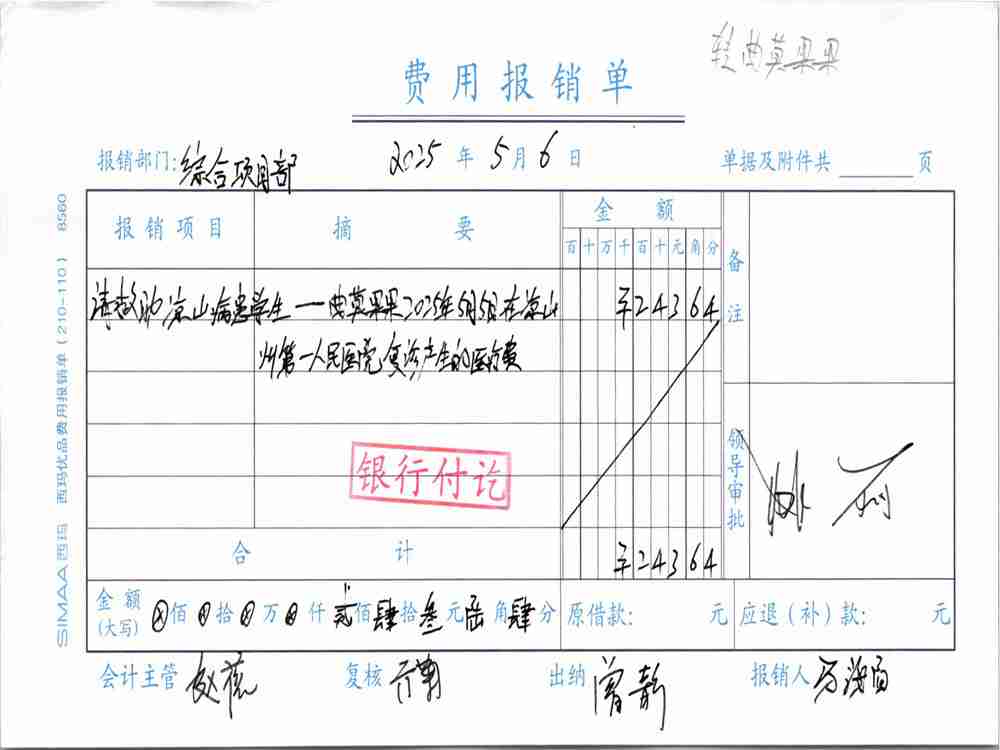 转曲莫果果
费用报销单
报销部门:综合项目部 2025年5月6日 单据及附件共 页
报销项目 摘要 金额 备注
百十万千百十元角分
请救助凉山病患学生——曲莫果果2025年5月5日在凉山 ¥24364
州第一人民医院复诊产生的医疗费
银行付讫
领导审批
合计 ¥24364
金额(大写) ⊗佰⊗拾⊗万⊗仟贰佰肆拾叁元陆角肆分 原借款: 元 应退(补)款: 元
会计主管 复核 出纳 曾静 报销人
SIMAA 西玛 西玛优品费用报销单(210-110) 8560